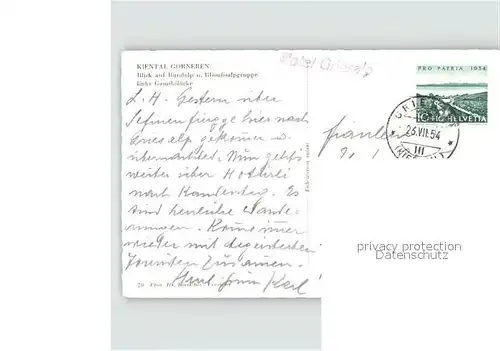 KIENTAL GORNEREN
Blick auf Bundalp u. Blümlisalpgruppe
links Gamchilücke
Hotel Griesalp
PRO PATRIA 1954
10 HELVETIA
GRIES
23.VII.54
III
L. H. Gestern über
Sefinenfurgge hier nach
Griesalp gekommen u.
übernachtet. Nun geht's
weiter über Hohtürli
nach Kandersteg. Es
sind herrliche Wande-
rungen. Komme immer
wieder mit begeisterten
Freunden zusammen.
Karl
Fräulein
privacy protection
Datenschutz